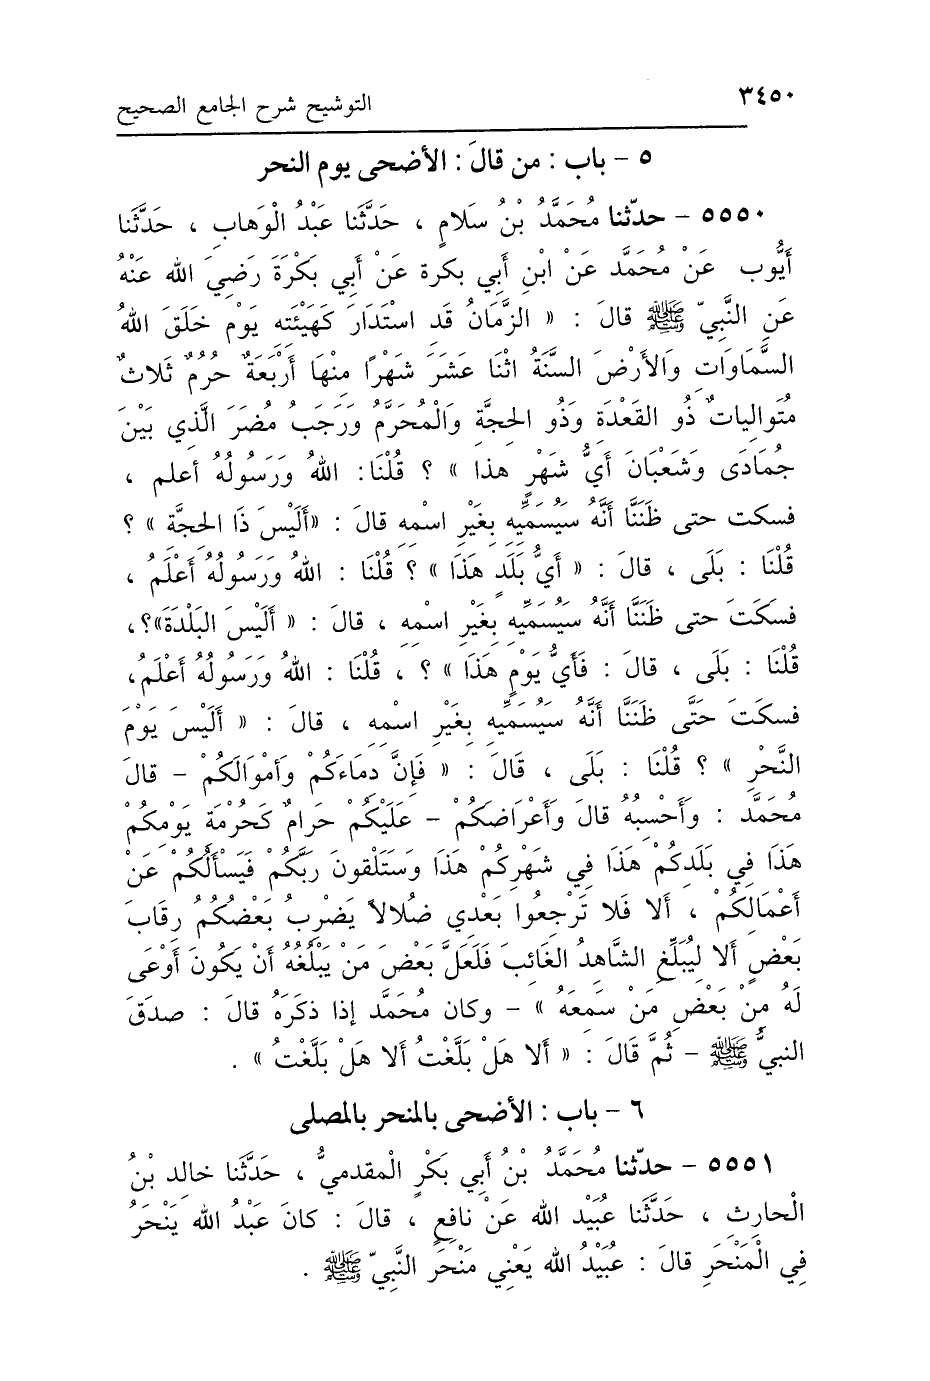 ٣٤٥٠ التوشيح شرح الجامع الصحيح
٥ - باب : من قالَ : الأضحى يوم النحر
٥٥٥٠ - حدّثنا مُحَمَّدُ بْنُ سَلَامٍ ، حَدَّثَنَا عَبْدُ الْوَهابِ ، حَدَّثَنَا
أَيُّوب عَنْ مُحَمَّد عَنْ ابْنِ أَبِي بكرة عَنْ أَبِي بَكْرَةَ رَضِيَ الله عَنْهُ
عَنِ النَّبِيّ ﷺ قالَ : « الزَّمَانُ قَد اسْتَدَارَ كَهَيْئَتِهِ يَوْم خَلَقَ اللهُ
السَّمَاوَاتِ وَالأَرْضَ السَّنَةُ اثْنَا عَشَرَ شَهْرًا مِنْهَا أَرْبَعَةٌ حُرُمٌ ثَلاثٌ
مُتَوالياتٌ ذُو القَعْدَة وَذُو الحِجَّةِ وَالْمُحَرَّمُ وَرَجَبُ مُضَرَ الَّذِي بَيْنَ
جُمَادَى وَشَعْبَانَ أَيُّ شَهْرٍ هذا » ؟ قُلْنَا: اللهُ وَرَسُولُهُ أعلم ،
فسكت حتى ظَنَنَّا أَنَّهُ سَيُسَمِّيهِ بِغَيْرِ اسْمِهِ قالَ : «أَلَيْسَ ذَا الحِجَّةِ » ؟
قُلْنَا : بَلَى ، قالَ : « أَيُّ بَلَدٍ هَذَا » ؟ قُلْنَا : اللهُ وَرَسُولُهُ أَعْلَمُ ،
فسَكَتَ حتى ظَنَنَّا أَنَّهُ سَيُسَمِّيهِ بِغَيْرِ اسْمِهِ ، قالَ : « أَلَيْسَ البَلْدَةَ»؟،
قُلْنَا : بَلَى ، قالَ : فَأَيُّ يَوْمٍ هَذَا » ؟ ، قُلْنَا : اللهُ وَرَسُولُهُ أَعْلَمُ،
فسكَتَ حَتَّى ظَنَنَّا أَنَّهُ سَيُسَمِّيهِ بِغَيْرِ اسْمِهِ ، قالَ : « أَلَيْسَ يَوْمَ
النَّحْرِ » ؟ قُلْنَا : بَلَى ، قَالَ : « فَإِنَّ دِمَاءَكُمْ وَأَمْوَالَكُمْ - قالَ
مُحَمَّد : وَأَحْسِبُهُ قالَ وَأَعْرَاضَكُمْ - عَلَيْكُمْ حَرَامٌ كَحُرْمَةِ يَوْمِكُمْ
هَذَا فِي بَلَدِكُمْ هَذَا فِي شَهْرِكُمْ هَذَا وَسَتَلْقَونَ رَبَّكُمْ فَيَسْأَلُكُمْ عَنْ
أَعْمَالِكُمْ ، أَلا فَلا تَرْجِعُوا بَعْدِي ضُلالاً يَضْرِبُ بَعْضُكُمُ رِقَابَ
بَعْضٍ أَلا لِيُبَلِّغِ الشَّاهِدُ الغَائِبَ فَلَعَلَّ بَعْضَ مَنْ يَبْلُغُهُ أَنْ يَكُونَ أَوْعَى
لَهُ مِنْ بَعْضِ مَنْ سَمِعَهُ » - وكان مُحَمَّد إذا ذكَرَهُ قالَ : صدَقَ
النبيُّ ﷺ - ثُمَّ قَالَ : « أَلا هَلْ بَلَّغْتُ أَلا هَلْ بَلَّغْتُ » .
٦ - باب : الأضحى بالمنحر بالمصلى
٥٥٥١ - حدّثنا مُحَمَّدُ بْنُ أَبِي بَكْرٍ الْمقدميُّ ، حَدَّثَنَا خالِد بْنُ
الْحارِثِ ، حَدَّثَنَا عُبَيْد الله عَنْ نافِعٍ ، قالَ : كانَ عَبْدُ الله يَنْحَرُ
فِي الْمَنْحَرِ قالَ : عُبَيْدُ الله يَعْنِي مَنْحَرَ النَّبِيّ ﷺ .